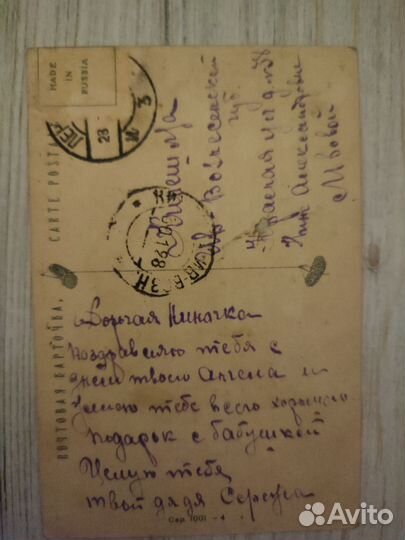 MADE
IN
RUSSIA
CARTE POSTALE
ПОЧТОВАЯ КАРТОЧКА.
Кинешма
Ив-Вознесенской
губ.
Красная ул
Нине Александровне
Дорогая Ниночка
поздравляю тебя с
днем твоего Ангела и
желаю тебе всего хорошего
подарок с бабушкой
Целую тебя
твой дядя Сережа
Сер. 1001 - 4
Avito